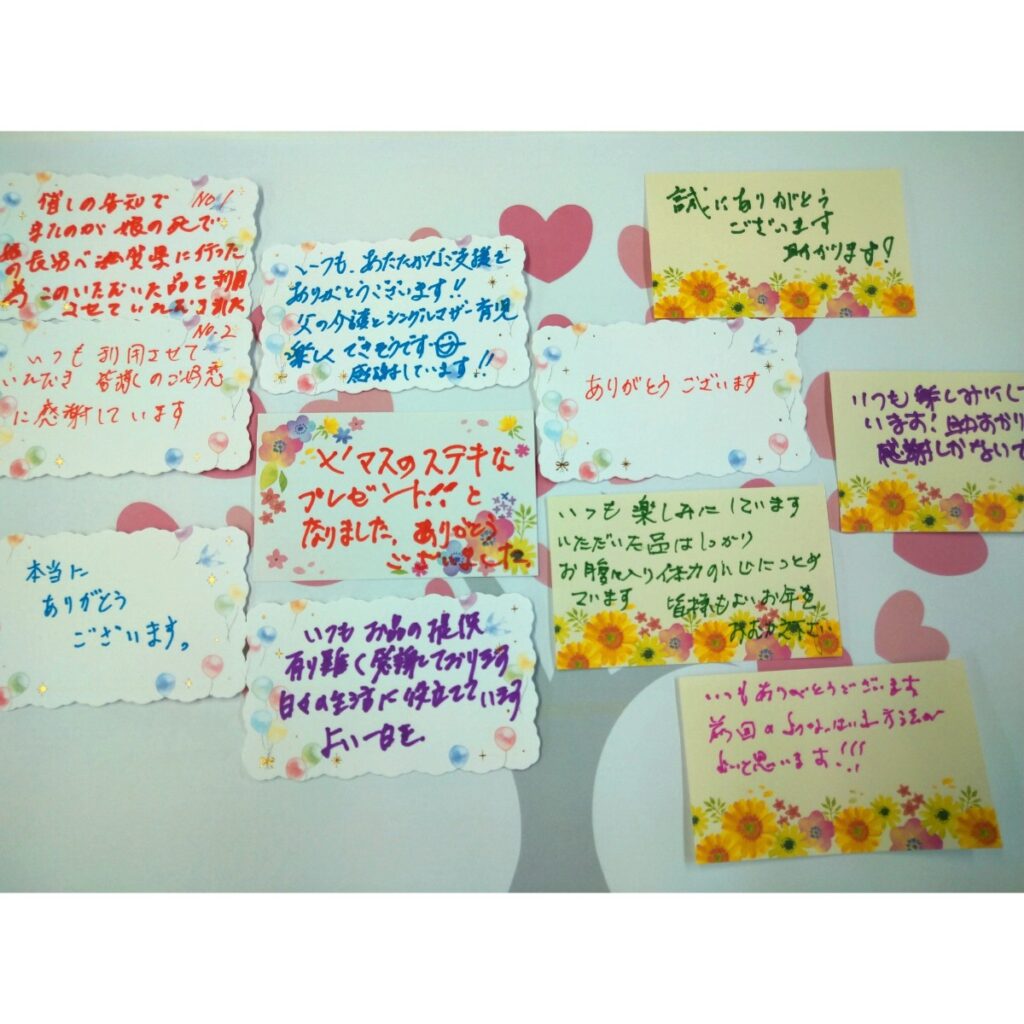 No.1
催しの告知で
来たのが娘の死で
の長男へ滋賀県に行った
為 このいただいた品を利用
させていただきました
No.2
いつも 利用させて
いただき 皆様のご好意
に感謝しています
本当に
ありがとう
ございます。
いつも、あたたかなご支援を
ありがとうございます!!
父の介護とシングルマザー育児
楽しくできそうです
感謝しています!!
X'マスのステキな
プレゼント!!と
なりました。ありがとう
ございました。
いつも お品の提供
有り難く感謝しております
日々の生活に役立てています
よい一日を
誠にありがとう
ございます
助かります!
ありがとう ございます
いつも楽しみにして
います!助かり
感謝しかないで
いつも 楽しみにしています
いただいた品はしっかり
お腹に入り体力の
ています 皆様もよいお年を
おむかえ下さい
いつもありがとうございます
前回の 方法が
よいと思います!!!